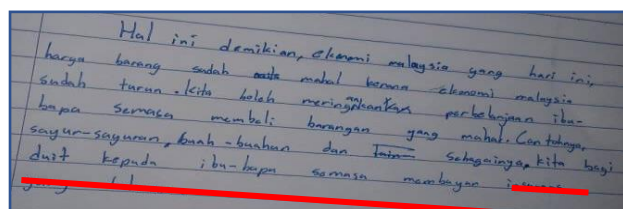 Hal ini demikian, ekonomi malaysia yang hari ini,
harga barang sudah mahal kerana ekonomi malaysia
sudah turun. kita boleh meringankan perbelanjaan ibu-
bapa semasa membeli barangan yang mahal. Contohnya,
sayur-sayuran, buah-buahan dan lain- sebagainya, kita bagi
duit kepada ibu-bapa semasa membayar
yang